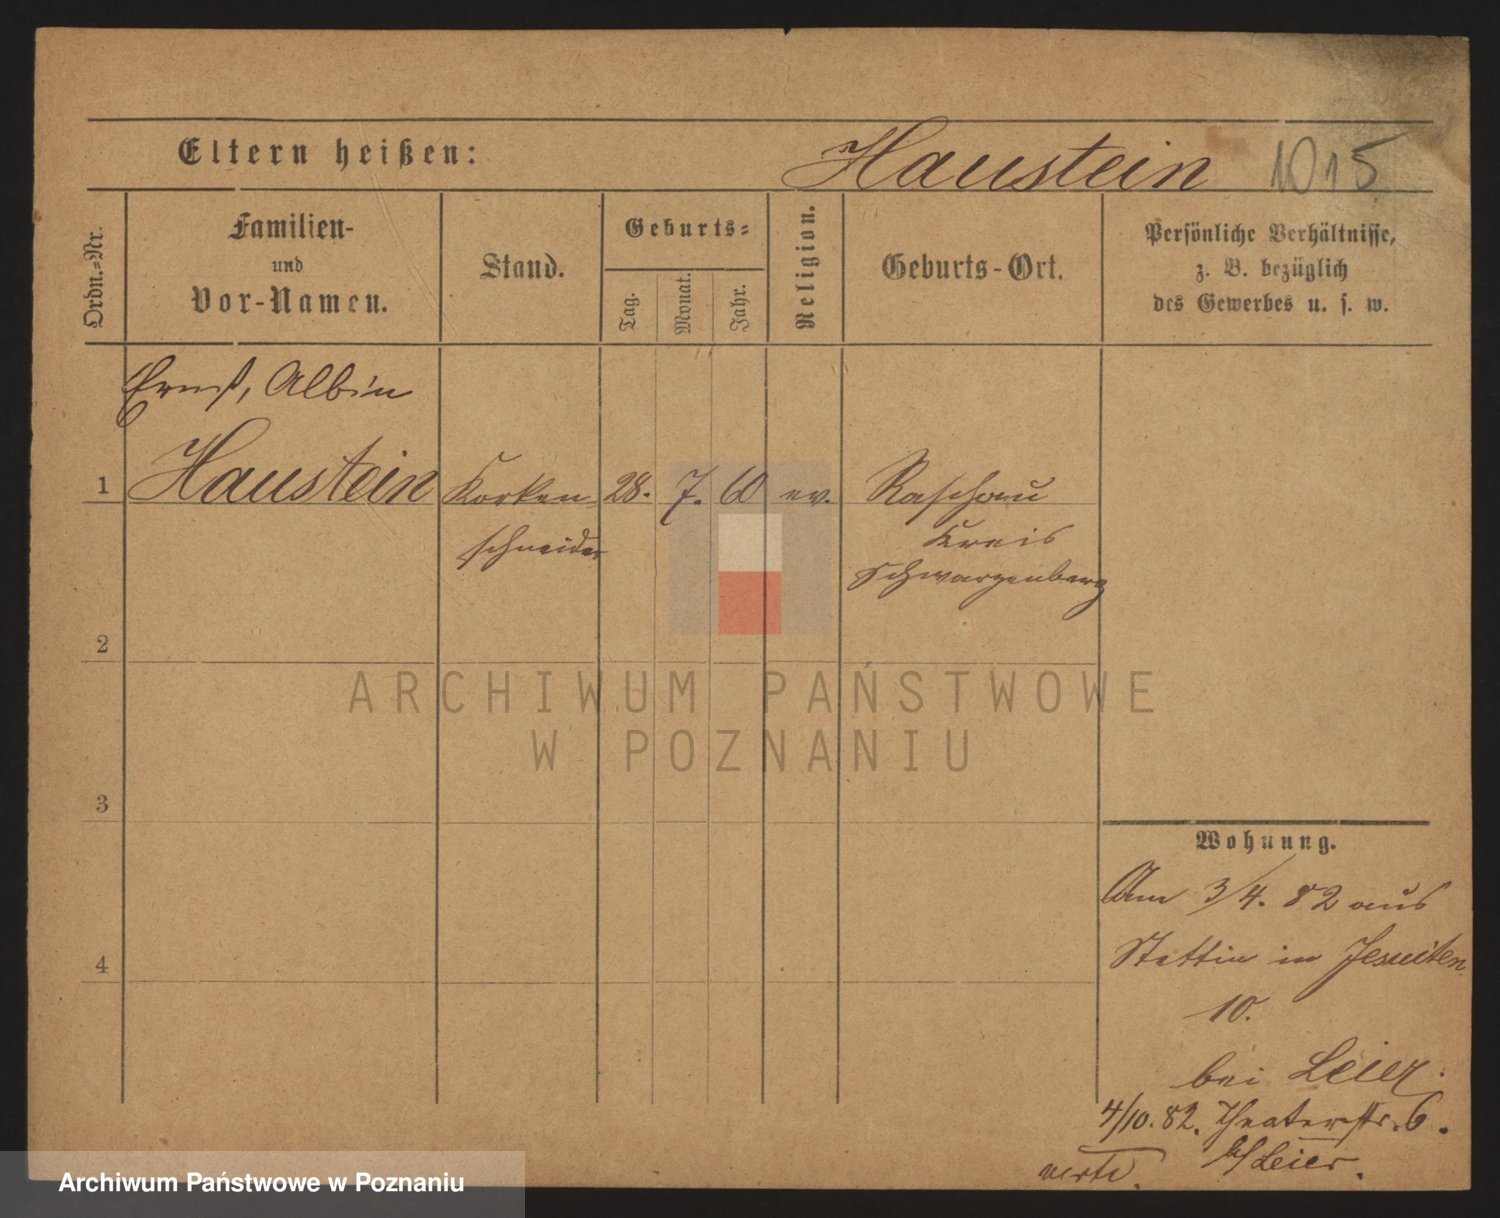 Eltern heißen: Haustein 1015
Ordn.=Nr.
Familien-
und
Vor-Namen.
Stand.
Geburts=
Tag.
Monat.
Jahr.
Religion.
Geburts-Ort.
Persönliche Verhältnisse,
z. B. bezüglich
des Gewerbes u. s. w.
Ernst, Albin
1 Haustein Korken= 28. 7. 60 ev. Raschau
schneider Kreis
Schwarzenberg
2
3
4
Wohnung.
Am 3/4. 82 aus
Stettin in Jesuiten
10.
bei Leier.
4/10. 82. Theaterstr. 6.
b/Leier.
verte.
ARCHIWUM PAŃSTWOWE
W POZNANIU
Archiwum Państwowe w Poznaniu